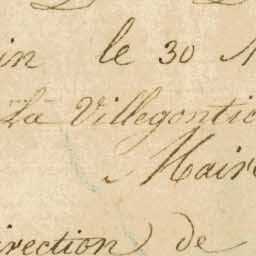 in le 30
la Villegontie
Maire
irection de